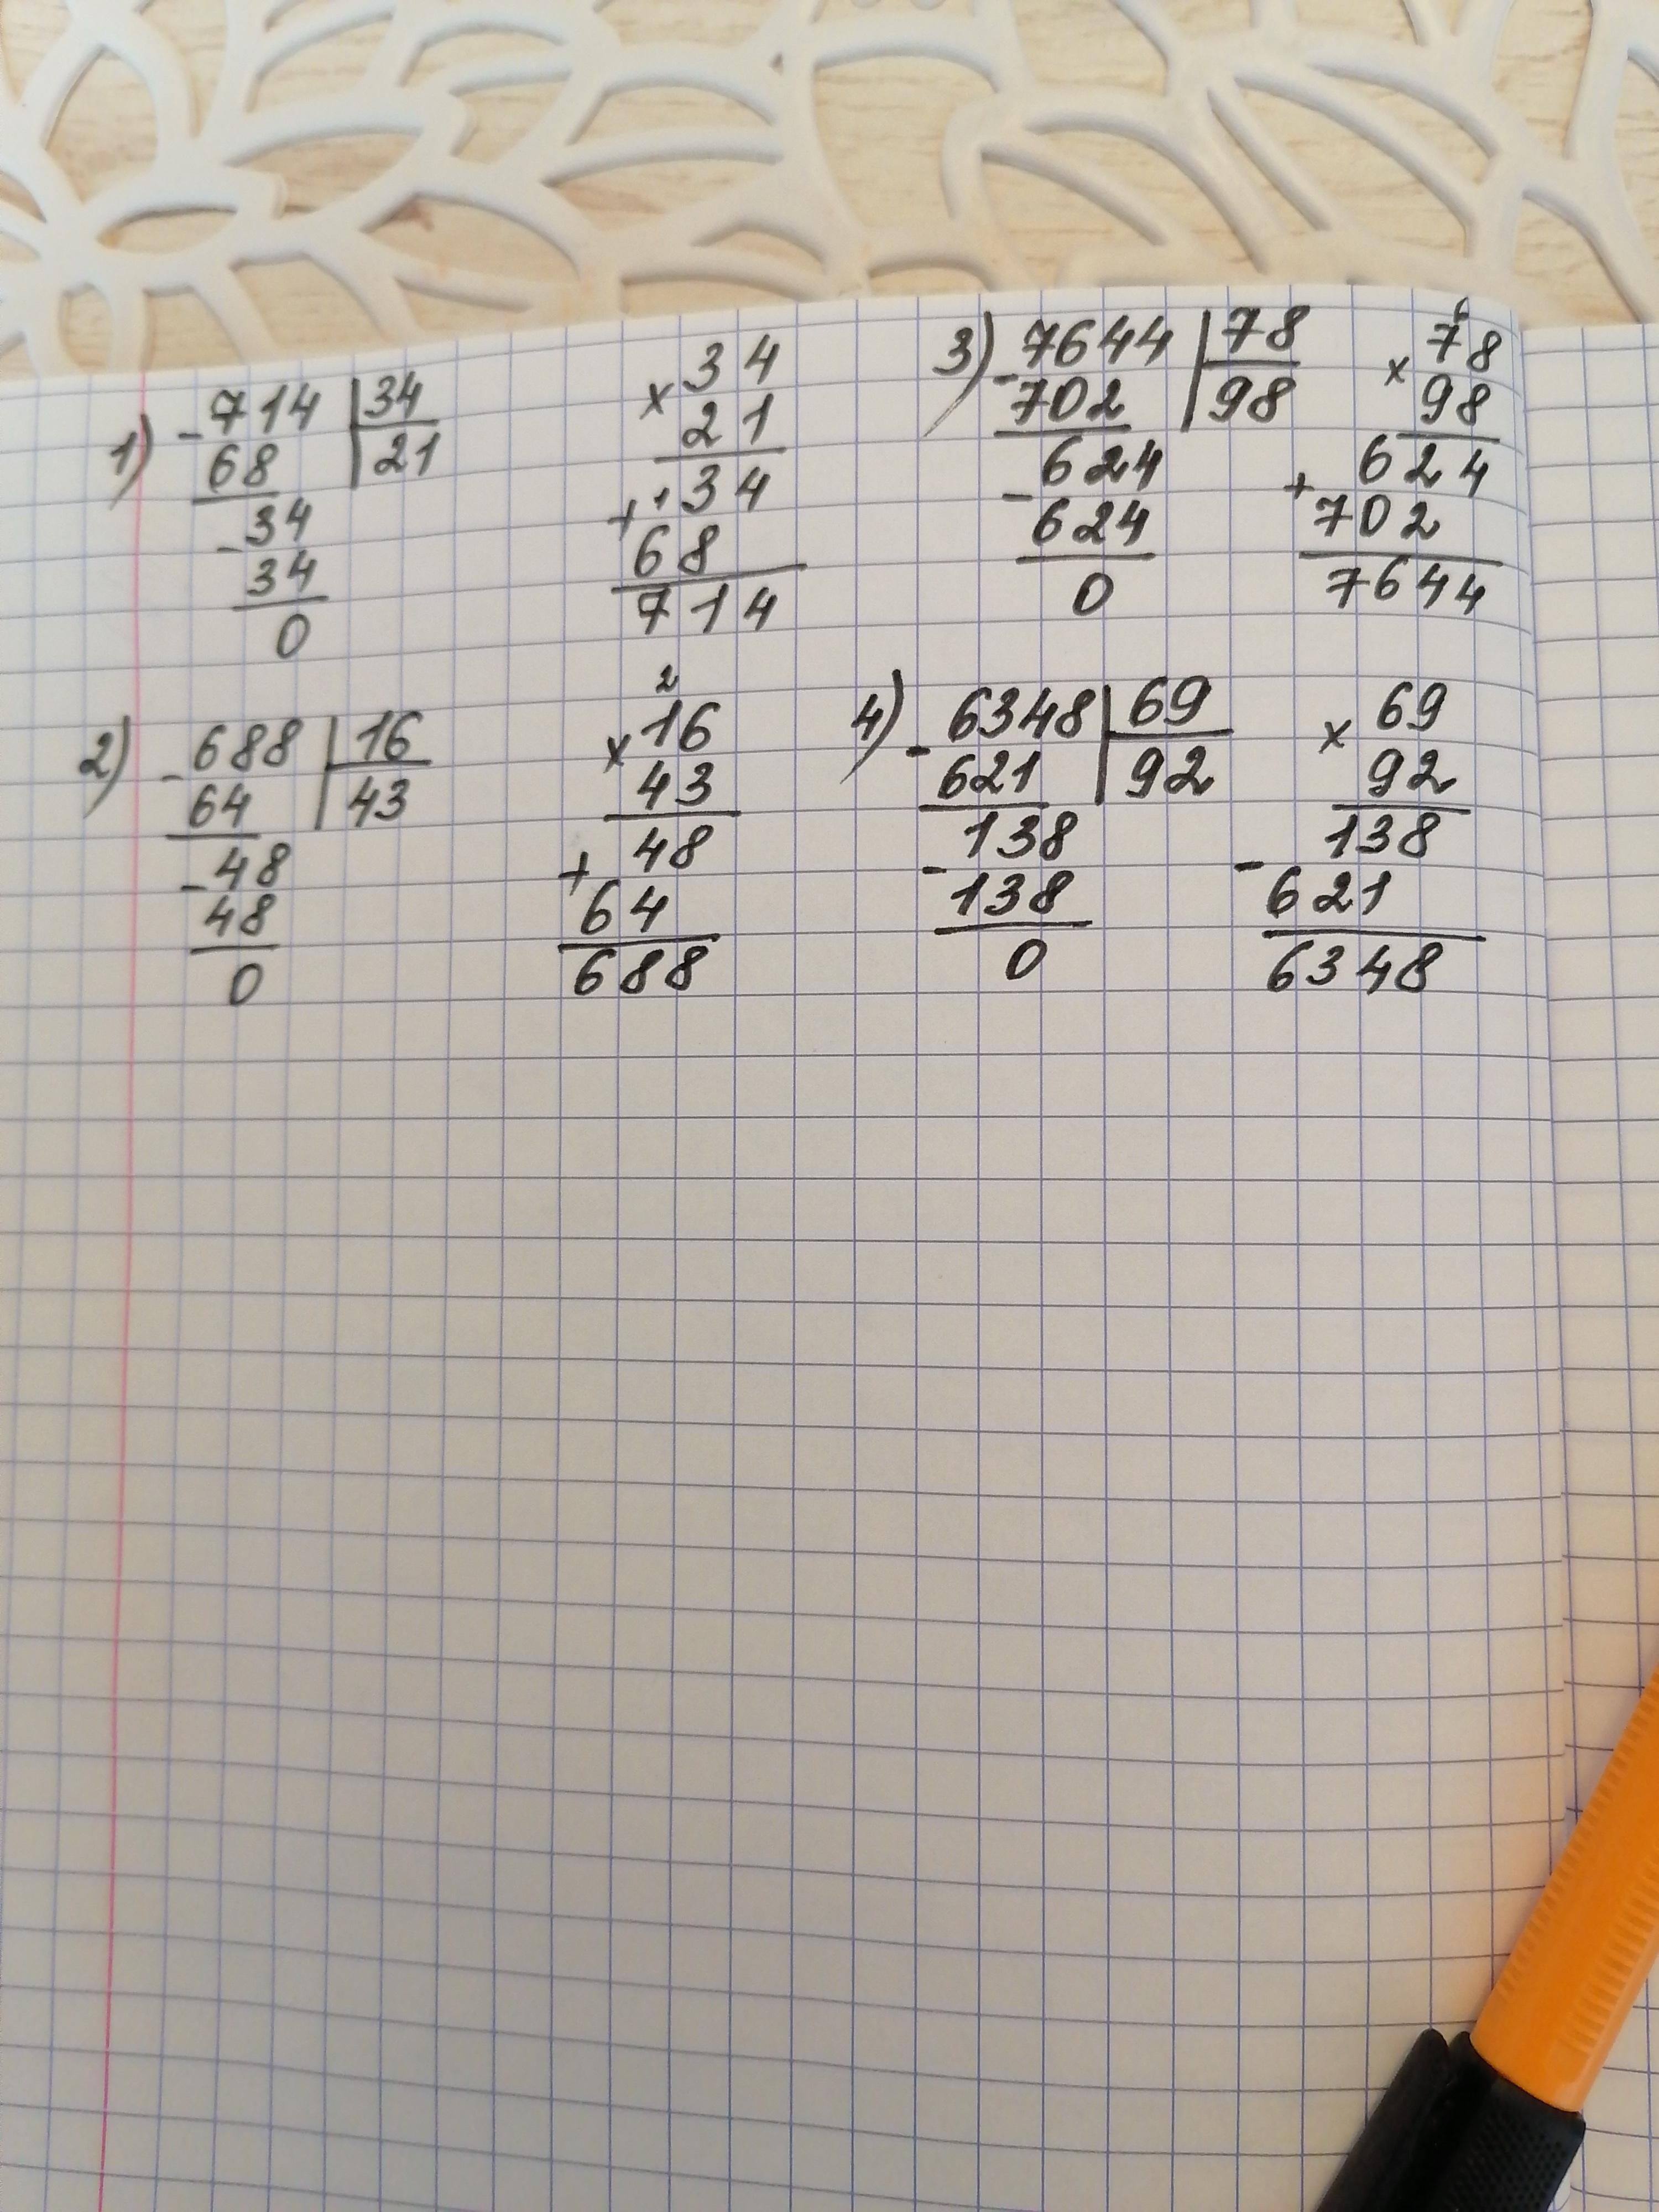 1) - 714 | 34
68 | 21
- 34
34
0
× 34
21
+ 34
68
714
2) - 688 | 16
64 | 43
- 48
48
0
2
× 16
43
+ 48
64
688
3) - 7644 | 78
702 | 98
- 624
624
0
6
× 78
98
+ 624
702
7644
4) - 6348 | 69
621 | 92
- 138
138
0
× 69
92
- 138
621
6348